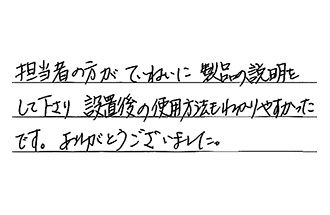 担当者の方が ていねいに 製品の説明を
して下さり 設置後の使用方法もわかりやすかった
です。ありがとうございました。